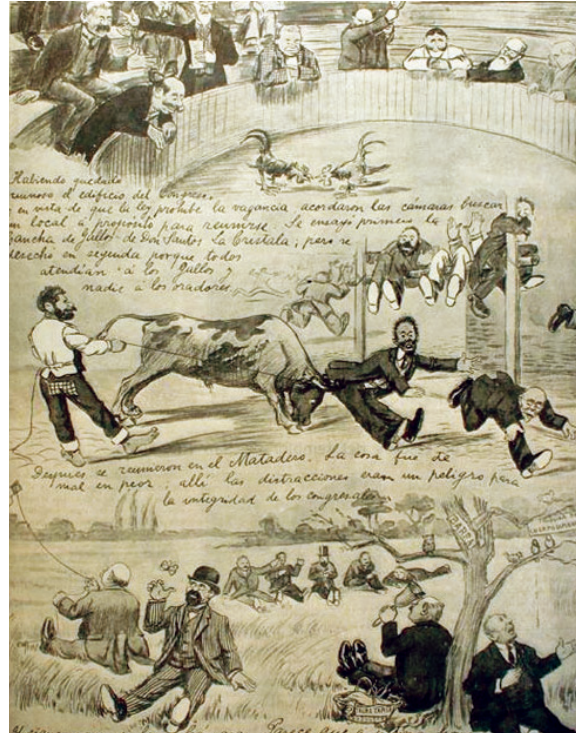 Habiendo quedado
ruinoso el edificio del Congreso,
en vista de que la ley prohibe la vagancia, acordaron las camaras buscar
un local á propósito para reunirse. Se ensayó primero la
Cancha de Gallos de Don Santos La Cristala; pero se
desechó en seguida porque todos
atendian á los Gallos y
nadie á los oradores.
Despues se reunieron en el Matadero. La cosa fué de
mal en peor: allí las distracciones eran un peligro para
la integridad de los congresales.
Parece que